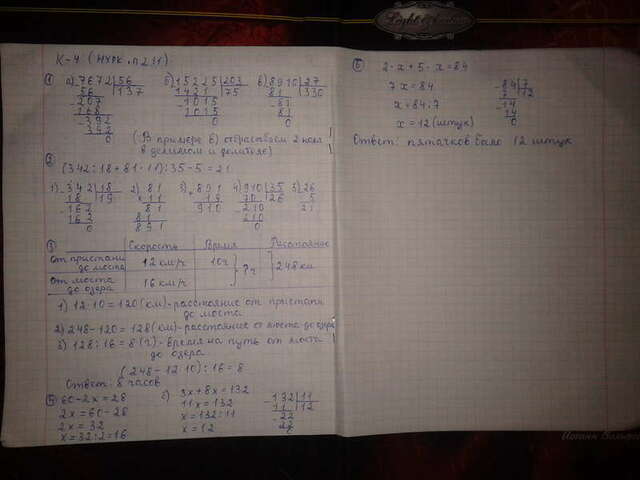 К-4 (НУРК п.231)
① а) 7672 | 56
56 | 137
-207
168
-392
392
0
б) 15225 | 203
1421 | 75
-1015
1015
0
в) 8910 | 27
81 | 330
-81
81
0
(В примере в) отбрасываем 2 нол
в делимом и делителе)
② (342:18+81·11):35-5=21
1) -342 | 18
18 | 19
-162
162
0
2) 81
11
81
81
891
3) 891
19
910
4) 910 | 35
70 | 26
-210
210
0
5) 26
5
21
③ Скорость Время Расстояние
от пристани до моста 12 км/ч 10ч
?ч 248 км
от моста до озера 16 км/ч
1) 12·10=120 (км)-расстояние от пристани
до моста
2) 248-120=128(км)-расстояние от моста до озера
3) 128:16=8 (ч)-время на путь от моста
до озера
(248-12·10):16=8
Ответ: 8 часов
60-2х=28
2х=60-28
2х=32
х=32:2=16
3х+8х=132
11х=132
х=132:11
х=12
-132 | 11
11 | 12
-22
22
2·х+5·х=84
7х=84
х=84:7
х=12(штук)
-84 | 7
7 | 12
-14
14
0
Ответ: пятачков было 12 штук